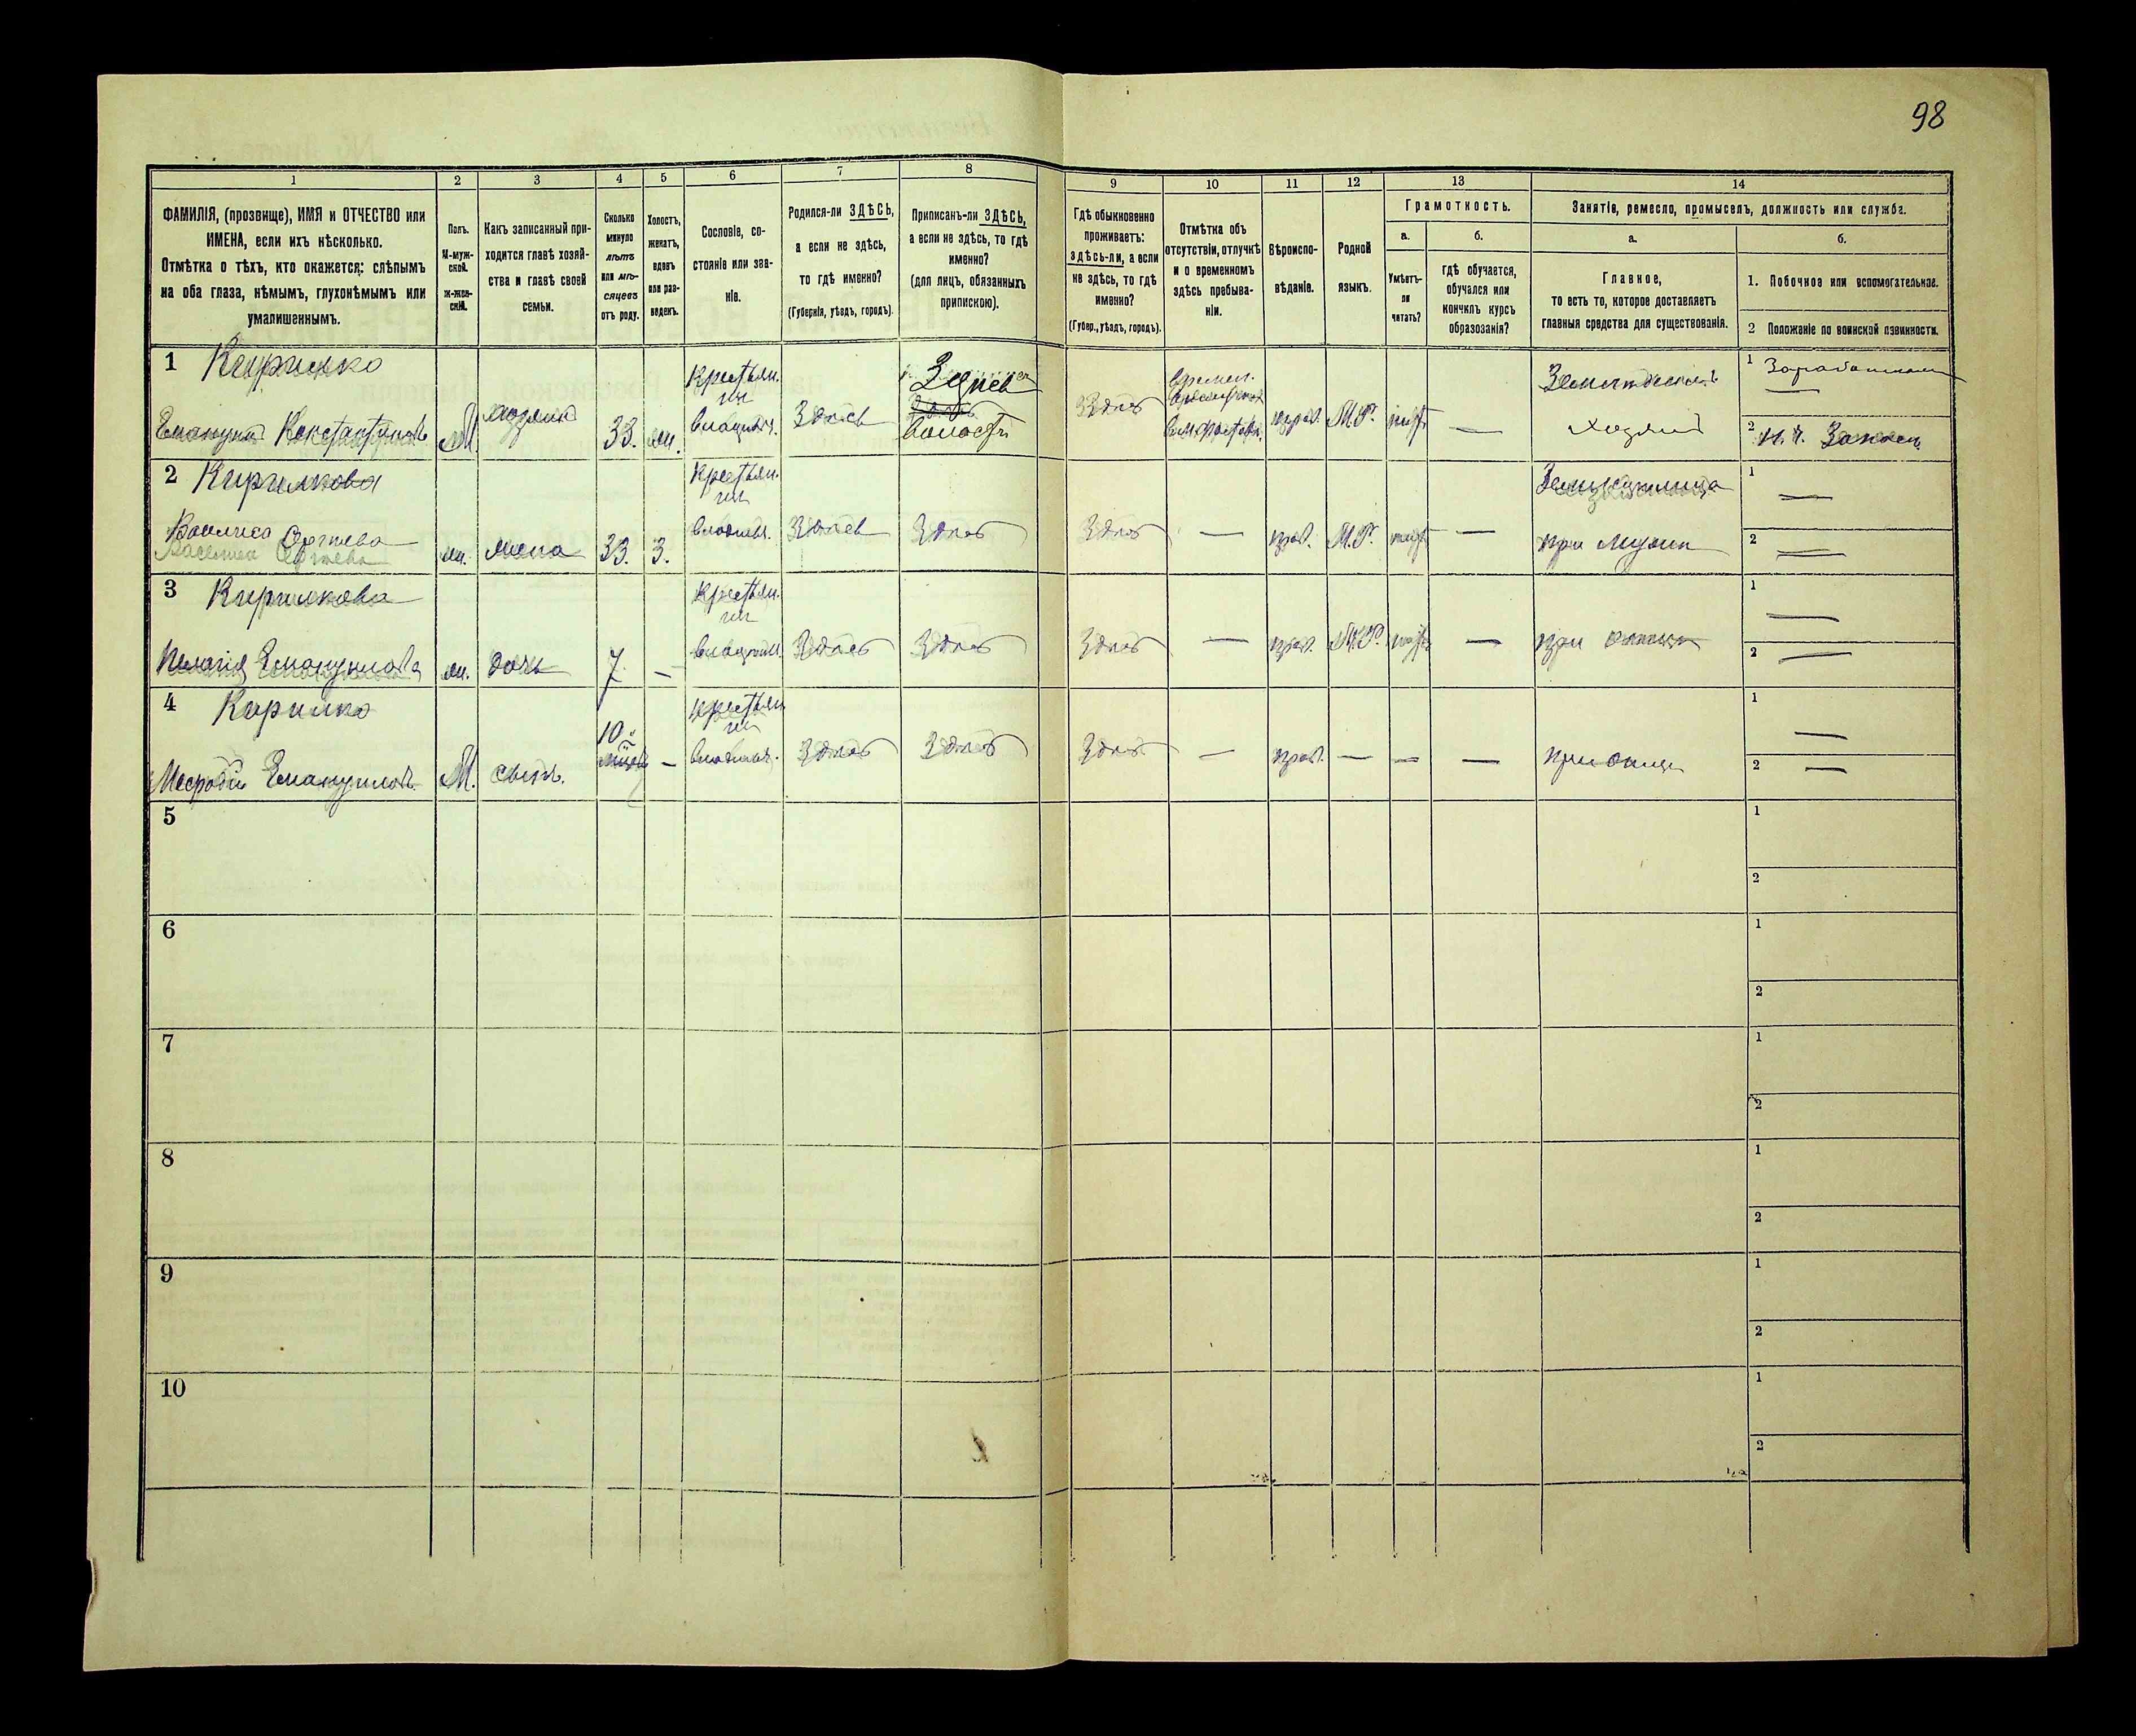 98
1
2
3
4
5
6
7
8
9
10
11
12
13
14
ФАМИЛІЯ, (прозвище), ИМЯ и ОТЧЕСТВО или
ИМЕНА, если ихъ нѣсколько.
Отмѣтка о тѣхъ, кто окажется: слѣпымъ
на оба глаза, нѣмымъ, глухонѣмымъ или
умалишеннымъ.
Полъ.
М-муж-
ской.
ж-жен-
скій.
Какъ записанный при-
ходится главѣ хозяй-
ства и главѣ своей
семьи.
Сколько
минуло
лѣтъ
или мѣ-
сяцевъ
отъ роду.
Холостъ,
женатъ,
вдовъ
или раз-
веденъ.
Сословіе, со-
стояніе или зва-
ніе.
Родился-ли ЗДѢСЬ,
а если не здѣсь,
то гдѣ именно?
(Губернія, уѣздъ, городъ).
Приписанъ-ли ЗДѢСЬ,
а если не здѣсь, то гдѣ
именно?
(для лицъ, обязанныхъ
припискою).
Гдѣ обыкновенно
проживаетъ:
здѣсь-ли, а если
не здѣсь, то гдѣ
именно?
(Губер., уѣздъ, городъ).
Отмѣтка объ
отсутствіи, отлучкѣ
и о временномъ
здѣсь пребыва-
ніи.
Вѣроиспо-
вѣданіе.
Родной
языкъ.
Грамотность.
а.
Умѣетъ-
ли
читать?
б.
гдѣ обучается,
обучался или
кончилъ курсъ
образованія?
Занятіе, ремесло, промыселъ, должность или служба.
а.
Главное,
то есть то, которое доставляетъ
главныя средства для существованія.
б.
1. Побочное или вспомогательное.
2 Положеніе по воинской повинности.
1 Кирилко
Емануилъ Константиновъ М. хозяинъ 33. ж. Крестьян. Здѣсь волости Здѣсь прав. М.Р. нѣтъ — Хозяинъ
1
2
2 Кирилкова
Василиса ж. жена 33. З. Крестьян. Здѣсь Здѣсь Здѣсь — прав. М.Р. нѣтъ — при мужѣ
1 —
2 —
3 Кирилкова
Пелагія Емануилова ж. дочь 7 — Крестьян. Здѣсь Здѣсь Здѣсь — прав. М.Р. нѣтъ — при отцѣ
1 —
2 —
4 Кирилко
Емануиловъ М. сынъ. 10 — Крестьян. Здѣсь Здѣсь Здѣсь — прав. — — — при отцѣ
1 —
2 —
5
1
2
6
1
2
7
1
2
8
1
2
9
1
2
10
1
2